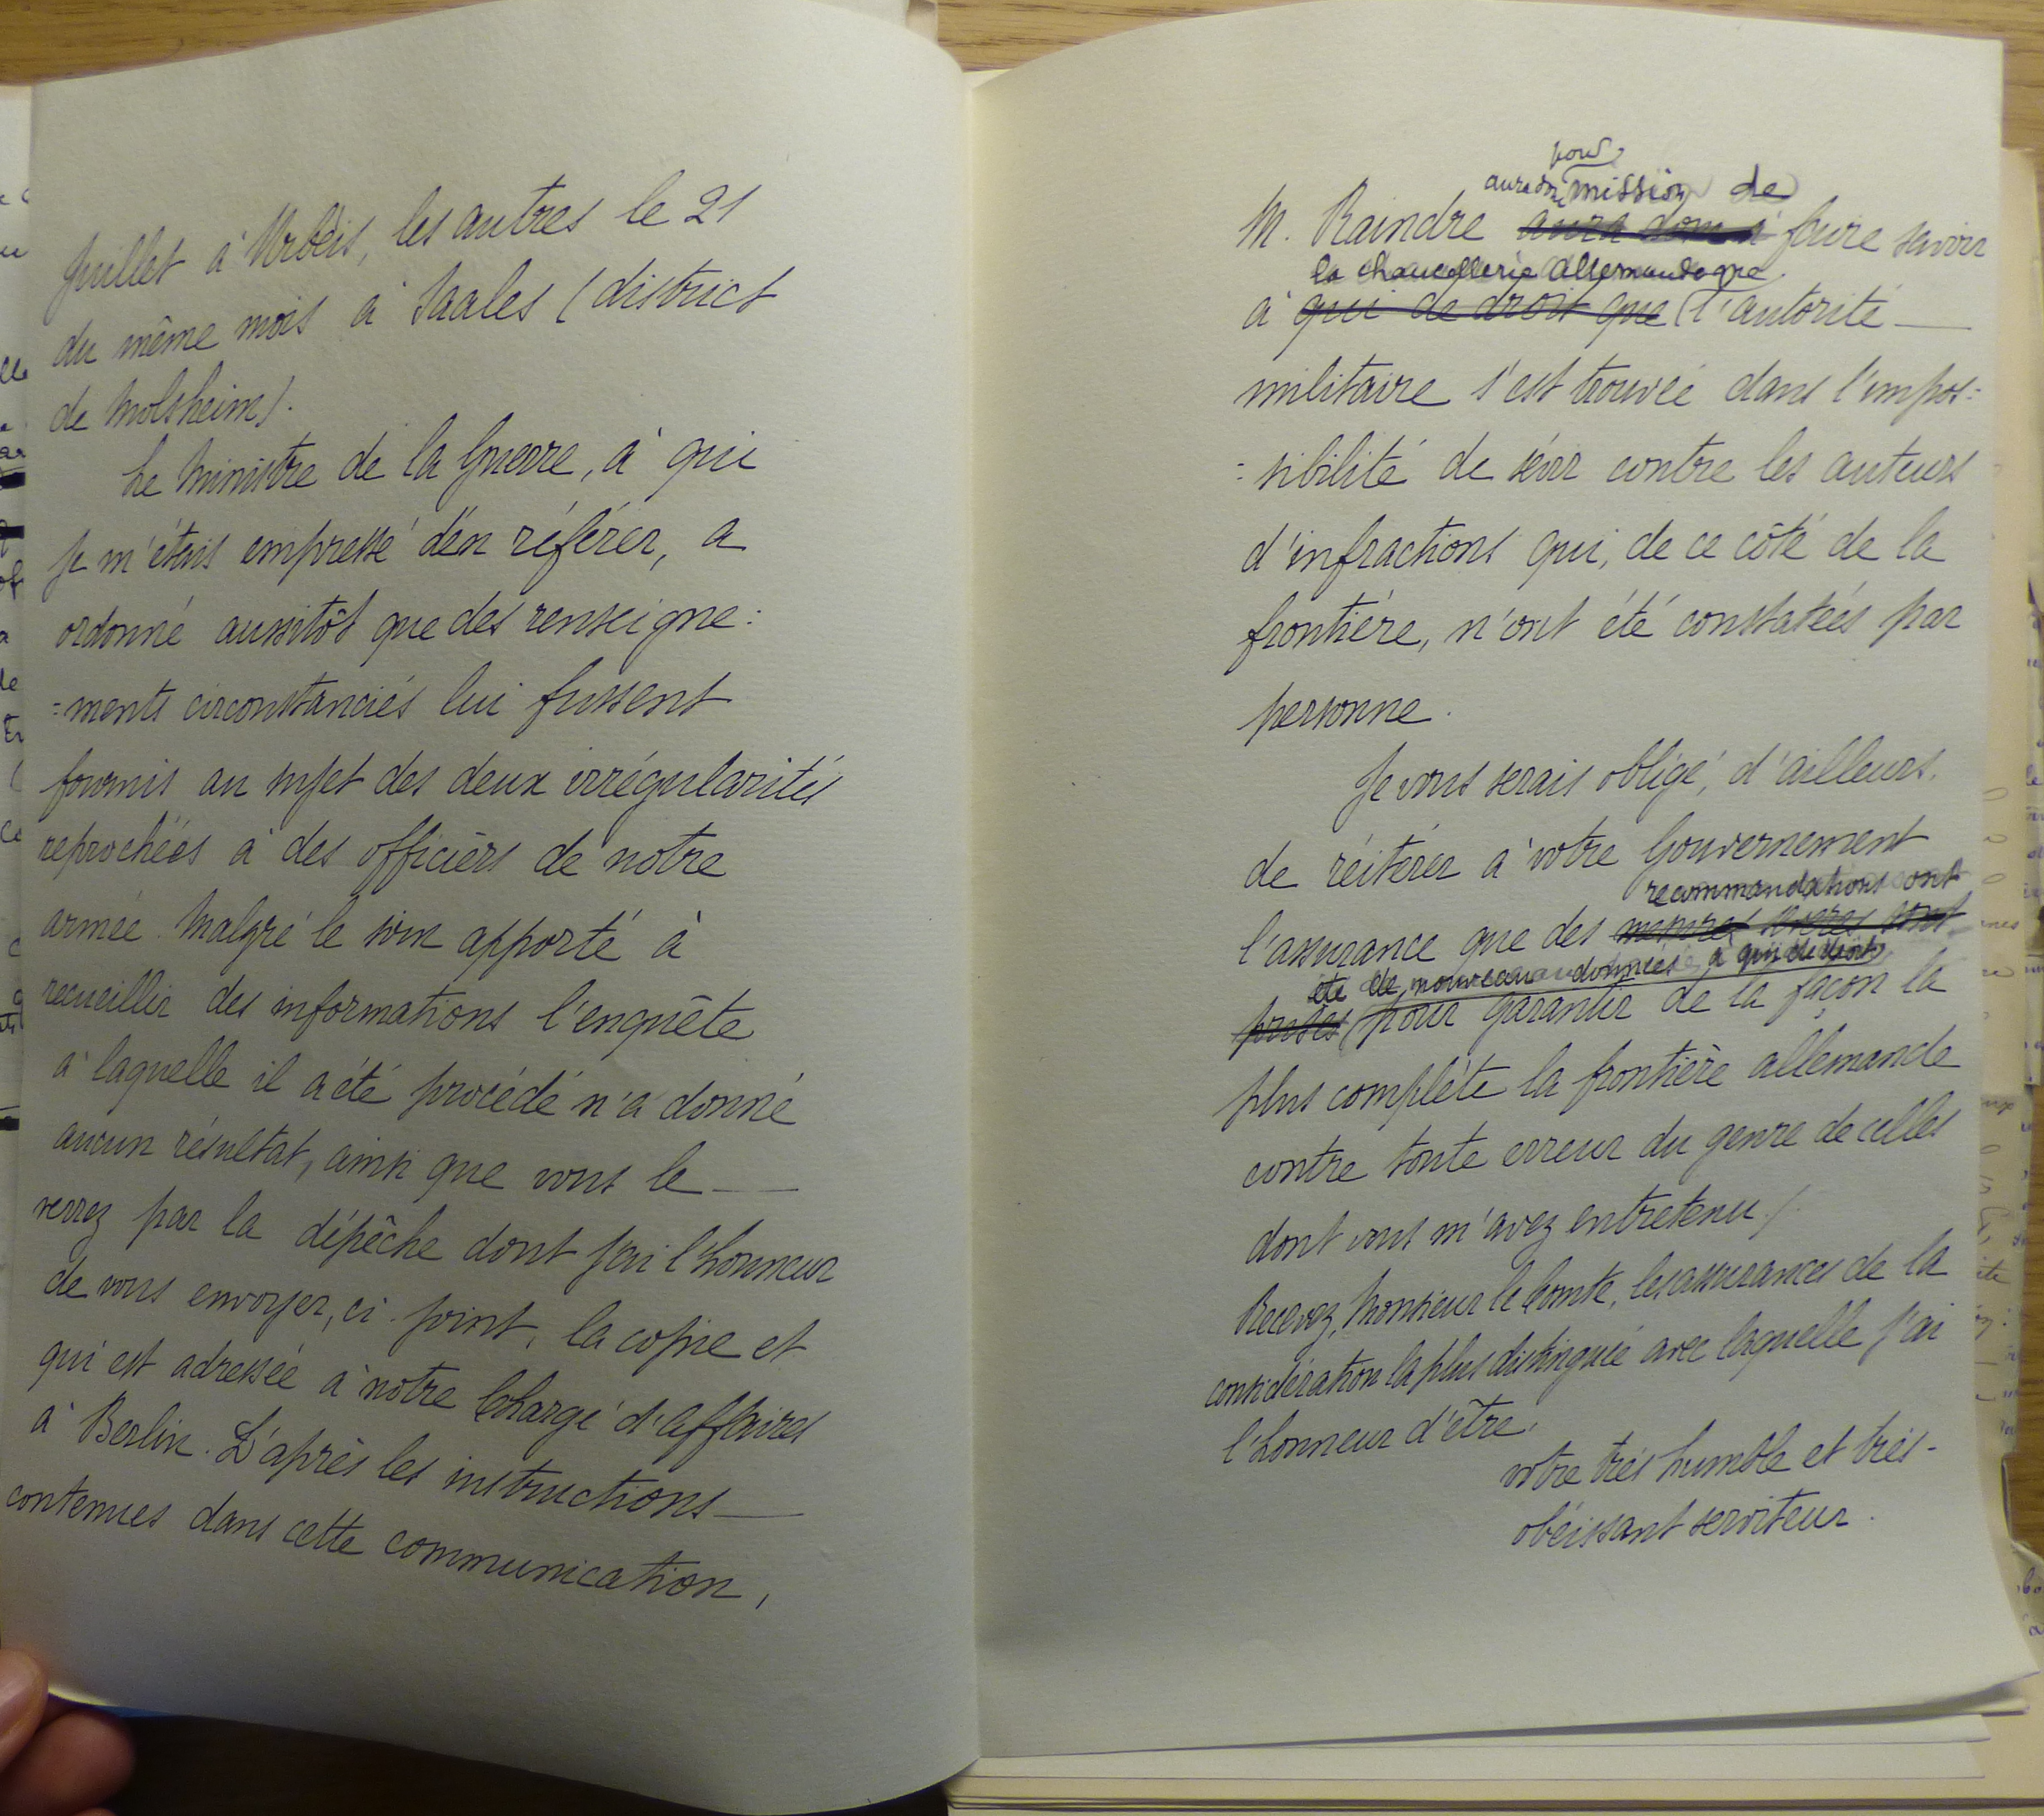 Juillet à Urbéis, les autres le 21
du même mois à Saales (district
de Molsheim).
Le Ministre de la Guerre, à qui
je m'étais empressé d'en référer, a
ordonné aussitôt que des renseigne:
=ments circonstanciés lui fussent
fournis au sujet des deux irrégularités
reprochées à des officiers de notre
armée. Malgré le soin apporté à
recueillir des informations l'enquête
à laquelle il a été procédé n'a donné
aucun résultat, ainsi que vous le
verrez par la dépêche dont j'ai l'honneur
de vous envoyer, ci-joint, la copie et
qui est adressée à notre Chargé d'affaires
à Berlin. D'après les instructions
contenues dans cette communication,
pour
mission de
M. Raindre aura donc à faire savoir
la chancellerie allemande que
à qui de droit que l'autorité
militaire s'est trouvée dans l'impos=
=sibilité de sévir contre les auteurs
d'infractions qui, de ce côté de la
frontière, n'ont été constatées par
personne.
Je vous serais obligé, d'ailleurs,
de réitérer à votre Gouvernement
recommandations ont
l'assurance que des mesures sont
été de nouveau données à qui de droit
prises pour garantir de la façon la
plus complète la frontière allemande
contre toute erreur du genre de celles
dont vous m'avez entretenu.
Recevez, Monsieur le Comte, les assurances de la
considération la plus distinguée avec laquelle j'ai
l'honneur d'être,
votre très humble et très-
obéissant serviteur.